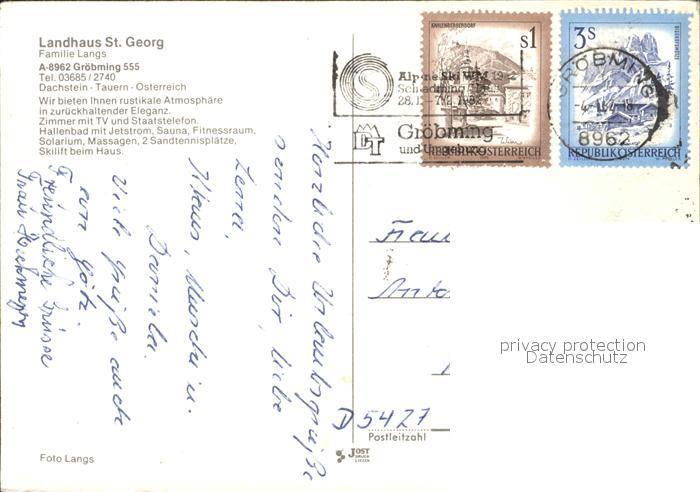 Landhaus St. Georg
Familie Langs
A-8962 Gröbming 555
Tel. 03685 / 2740
Dachstein - Tauern - Österreich
Wir bieten Ihnen rustikale Atmosphäre
in zurückhaltender Eleganz.
Zimmer mit TV und Staatstelefon.
Hallenbad mit Jetstrom, Sauna, Fitnessraum,
Solarium, Massagen, 2 Sandtennisplätze,
Skilift beim Haus.
Herzliche Urlaubsgrüße
senden Dir, liebe
Lena,
Klaus, u.
Daniela.
Viele Grüße auch
von Götz
Freundliche Grüsse
Frau
Foto Langs
KAHLENBERGERDORF
S1
REPUBLIK ÖSTERREICH
3S
BISCHOFSMÜTZE
REPUBLIK ÖSTERREICH
Alpine Ski WM 1982
Schladming
Gröbming
und Umgebung
GRÖBMING
8962
Frau
D 5427
Postleitzahl
JOST
DRUCK
LIEZEN
privacy protection
Datenschutz